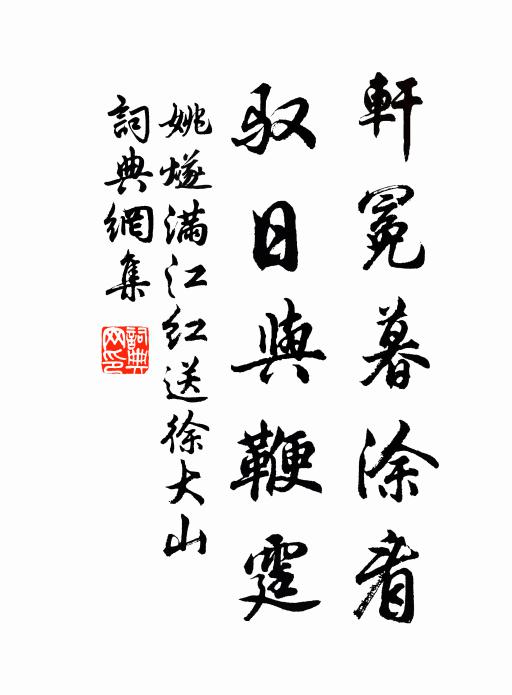 軒冕暮涂看
馭日與鞭霆
姚燧滿江紅送徐大山
詞典網集
詞典網印